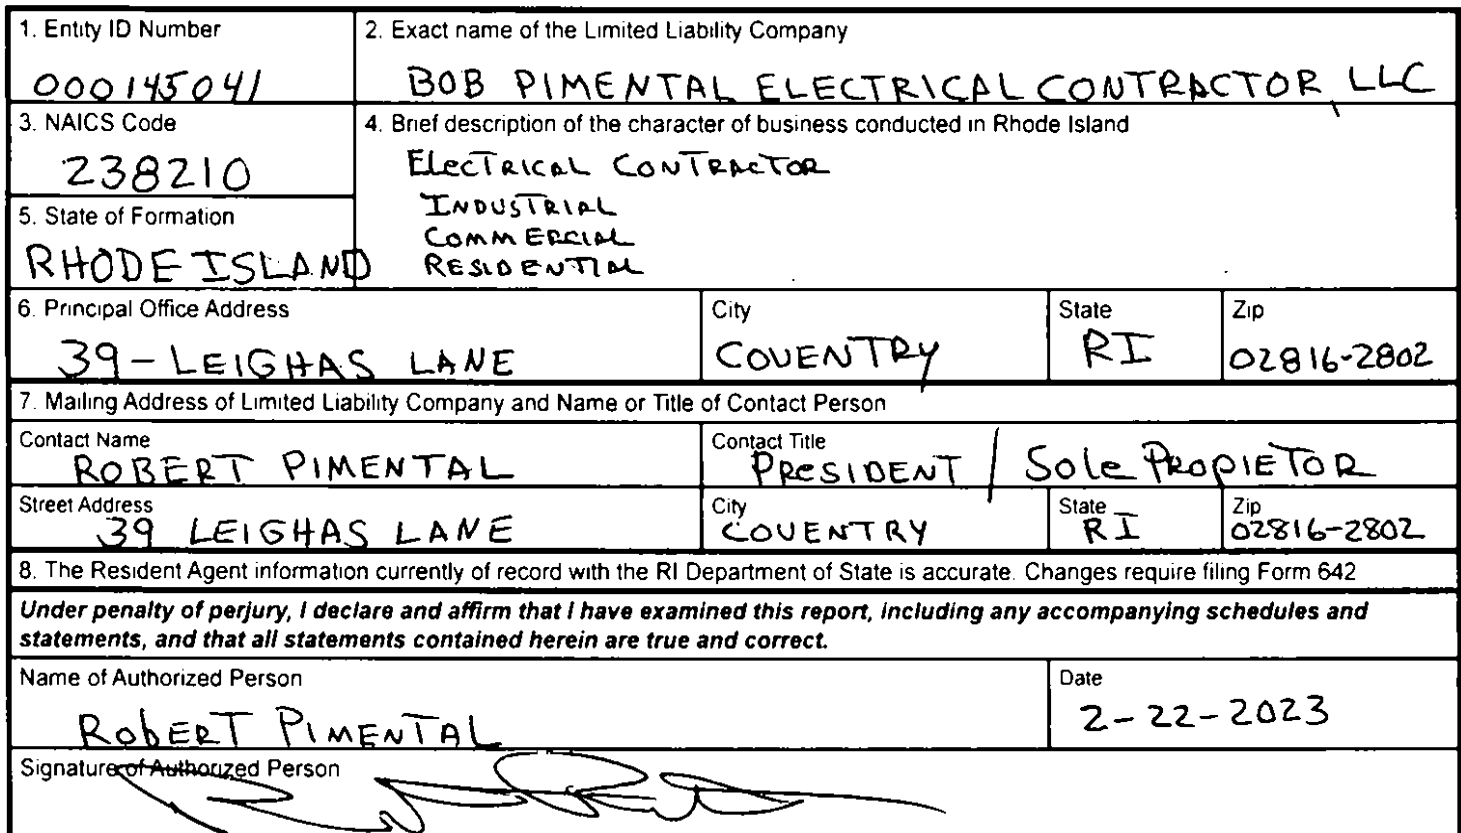 1. Entity ID Number
2. Exact name of the Limited Liability Company
000145041
BOB PIMENTAL ELECTRICAL CONTRACTOR, LLC
3. NAICS Code
4. Brief description of the character of business conducted in Rhode Island
238210
ELECTRICAL CONTRACTOR
INDUSTRIAL
5. State of Formation
COMMERCIAL
RHODE ISLAND
RESIDENTIAL
6. Principal Office Address
City
State
Zip
39-LEIGHAS LANE
COVENTRY
RI
02816-2802
7. Mailing Address of Limited Liability Company and Name or Title of Contact Person
Contact Name
Contact Title
ROBERT PIMENTAL
PRESIDENT / Sole PROPIETOR
Street Address
City
State
Zip
39 LEIGHAS LANE
COVENTRY
RI
02816-2802
8. The Resident Agent information currently of record with the RI Department of State is accurate. Changes require filing Form 642
Under penalty of perjury, I declare and affirm that I have examined this report, including any accompanying schedules and
statements, and that all statements contained herein are true and correct.
Name of Authorized Person
Date
RobERT PIMENTAL
2-22-2023
Signature of Authorized Person